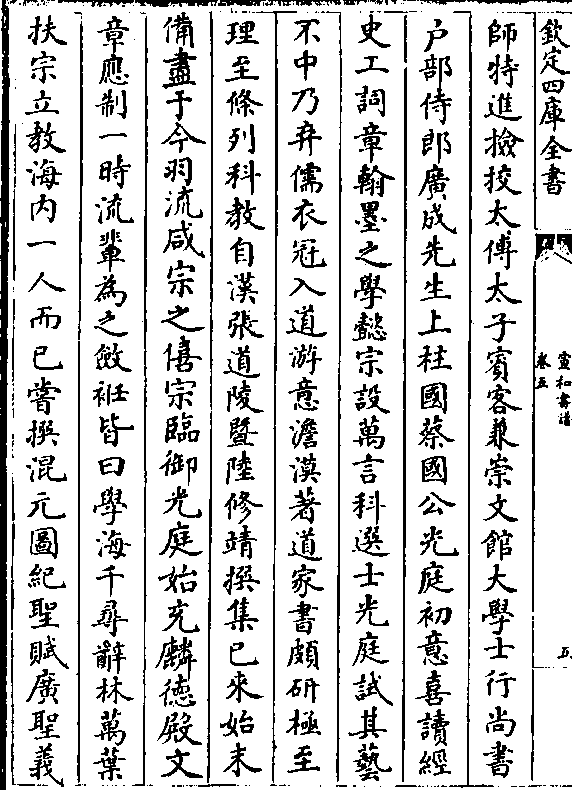 欽定四庫全書
宣和書譜
卷五
五
師特進撿挍太傅太子賓客兼崇文館大學士行尚書
户部侍郎廣成先生上柱國蔡國公光庭初意喜讀經
史工詞章翰墨之學懿宗設萬言科選士光庭試其藝
不中乃弃儒衣冠入道游意澹漠著道家書頗研極至
理至條列科教自漢張道陵暨陸修靖撰集已來始末
備盡于今羽流咸宗之僖宗臨御光庭始充麟德殿文
章應制一時流輩為之斂袵皆曰學海千尋辭林萬葉
扶宗立教海内一人而已嘗撰混元圖紀聖賦廣聖義